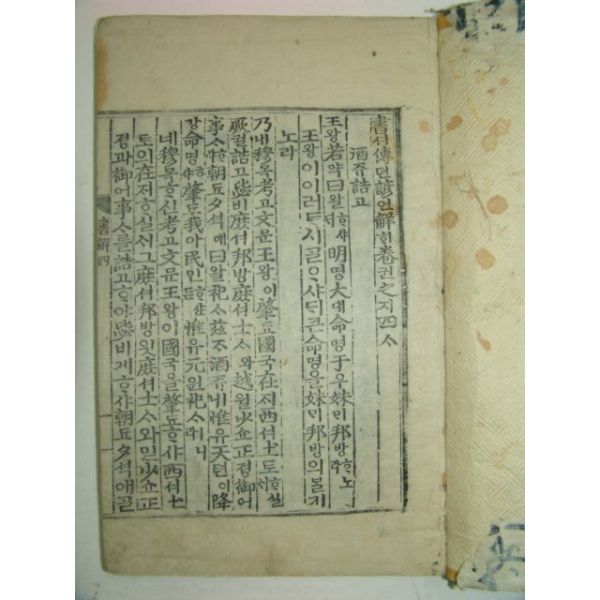 書셔傳뎐諺언解ᄒᆡ卷권之지四ᄉᆞ
酒쥬誥고
王왕若약曰왈ᄒᆞ샤ᄃᆡ明명大대命명于우妹ᄆᆡ邦방ᄒᆞ노라
王왕이이러ᄐᆞ시ᄀᆞᆯᄋᆞ샤ᄃᆡ큰命명을妹ᄆᆡ邦방의ᄇᆞᆯ기
노라
乃내穆목考고文문王왕이肇됴國국在ᄌᆡ西셔土토ᄒᆞ실ᄉᆡ
厥궐誥고毖비庶셔邦방庶셔士ᄉᆞ와越월少쇼正졍御어
事ᄉᆞᄒᆞ샤朝됴夕셕애曰왈祀ᄉᆞ玆ᄌᆞ酒쥬ㅣ니惟유天텬이降
강命명ᄒᆞ샤肇됴我아民민ᄒᆞ샤ᄂᆞᆫ惟유元원祀ᄉᆞㅣ러니
네穆목ᄒᆞ신考고文문王왕이國국을肇됴ᄒᆞ샤西셔土
토의在ᄌᆡᄒᆞ실ᄉᆡ그庶셔邦방읫庶셔士ᄉᆞ와밋少쇼正
졍과御어事ᄉᆞ를誥고ᄒᆞ야毖비케ᄒᆞ샤朝됴夕셕애ᄀᆞᆯ
書解四